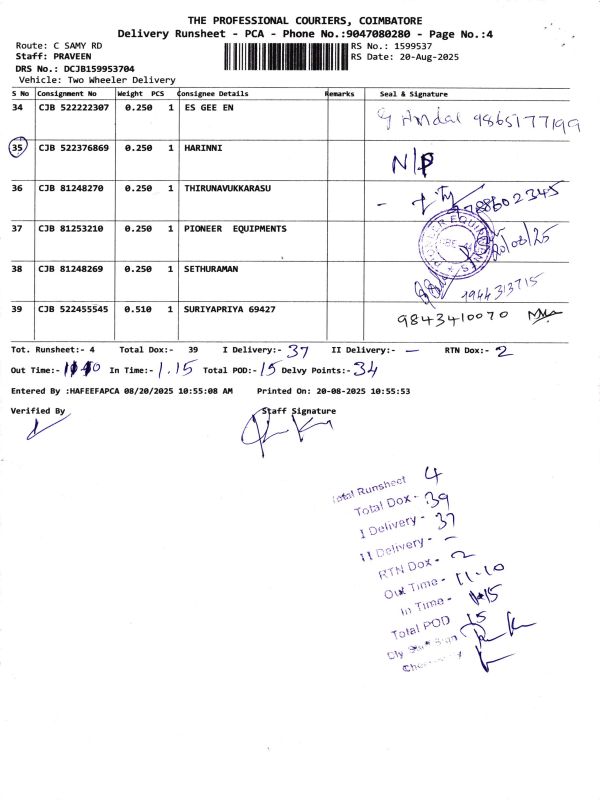 THE PROFESSIONAL COURIERS, COIMBATORE
Delivery Runsheet - PCA - Phone No.:9047080280 - Page No.:4
Route: C SAMY RD RS No.: 1599537
Staff: PRAVEEN RS Date: 20-Aug-2025
DRS No.: DCJB159953704
Vehicle: Two Wheeler Delivery
S No Consignment No Weight PCS Consignee Details Remarks Seal & Signature
34 CJB 522222307 0.250 1 ES GEE EN 9865177199
35 CJB 522376869 0.250 1 HARINNI N/P
36 CJB 81248270 0.250 1 THIRUNAVUKKARASU
37 CJB 81253210 0.250 1 PIONEER EQUIPMENTS 20/08/25
38 CJB 81248269 0.250 1 SETHURAMAN 1944313715
39 CJB 522455545 0.510 1 SURIYAPRIYA 69427 9843410070
Tot. Runsheet:- 4 Total Dox:- 39 I Delivery:- 37 II Delivery:- - RTN Dox:- 2
Out Time:- In Time:- 1.15 Total POD:- 15 Delvy Points:- 34
Entered By :HAFEEFAPCA 08/20/2025 10:55:08 AM Printed On: 20-08-2025 10:55:53
Verified By Staff Signature
Total Runsheet 4
Total Dox - 39
I Delivery - 37
II Delivery - -
RTN Dox - 2
Out Time - 11.10
In Time - 1.15
Total POD 15
Dly Staff Sign